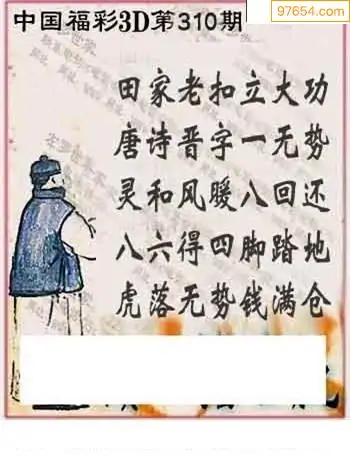 97654.com
中国福彩3D第310期
田家老扣立大功
唐诗晋字一无势
灵和风暖八回还
八六得四脚踏地
虎落无势钱满仓